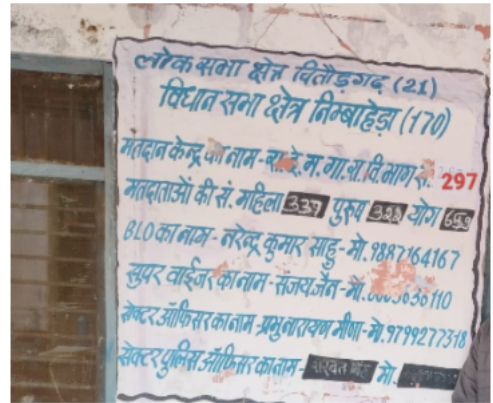 लोक सभा क्षेत्र चितौड़गढ़ (21)
विधान सभा क्षेत्र निम्बाहेड़ा (170)
मतदान केन्द्र का नाम - रा. दे. म. गा. स. वि. भाग सं. 297
मतदाताओं की सं. महिला 337 पुरुष योग
BLO का नाम - नरेन्द्र कुमार साहु - मो. 9887164167
सुपर वाईजर का नाम - संजय जैन - मो.
सेक्टर ऑफिसर का नाम - प्रभुनारायण मीणा - मो. 9799277318
सेक्टर पुलिस ऑफिसर का नाम - मो.